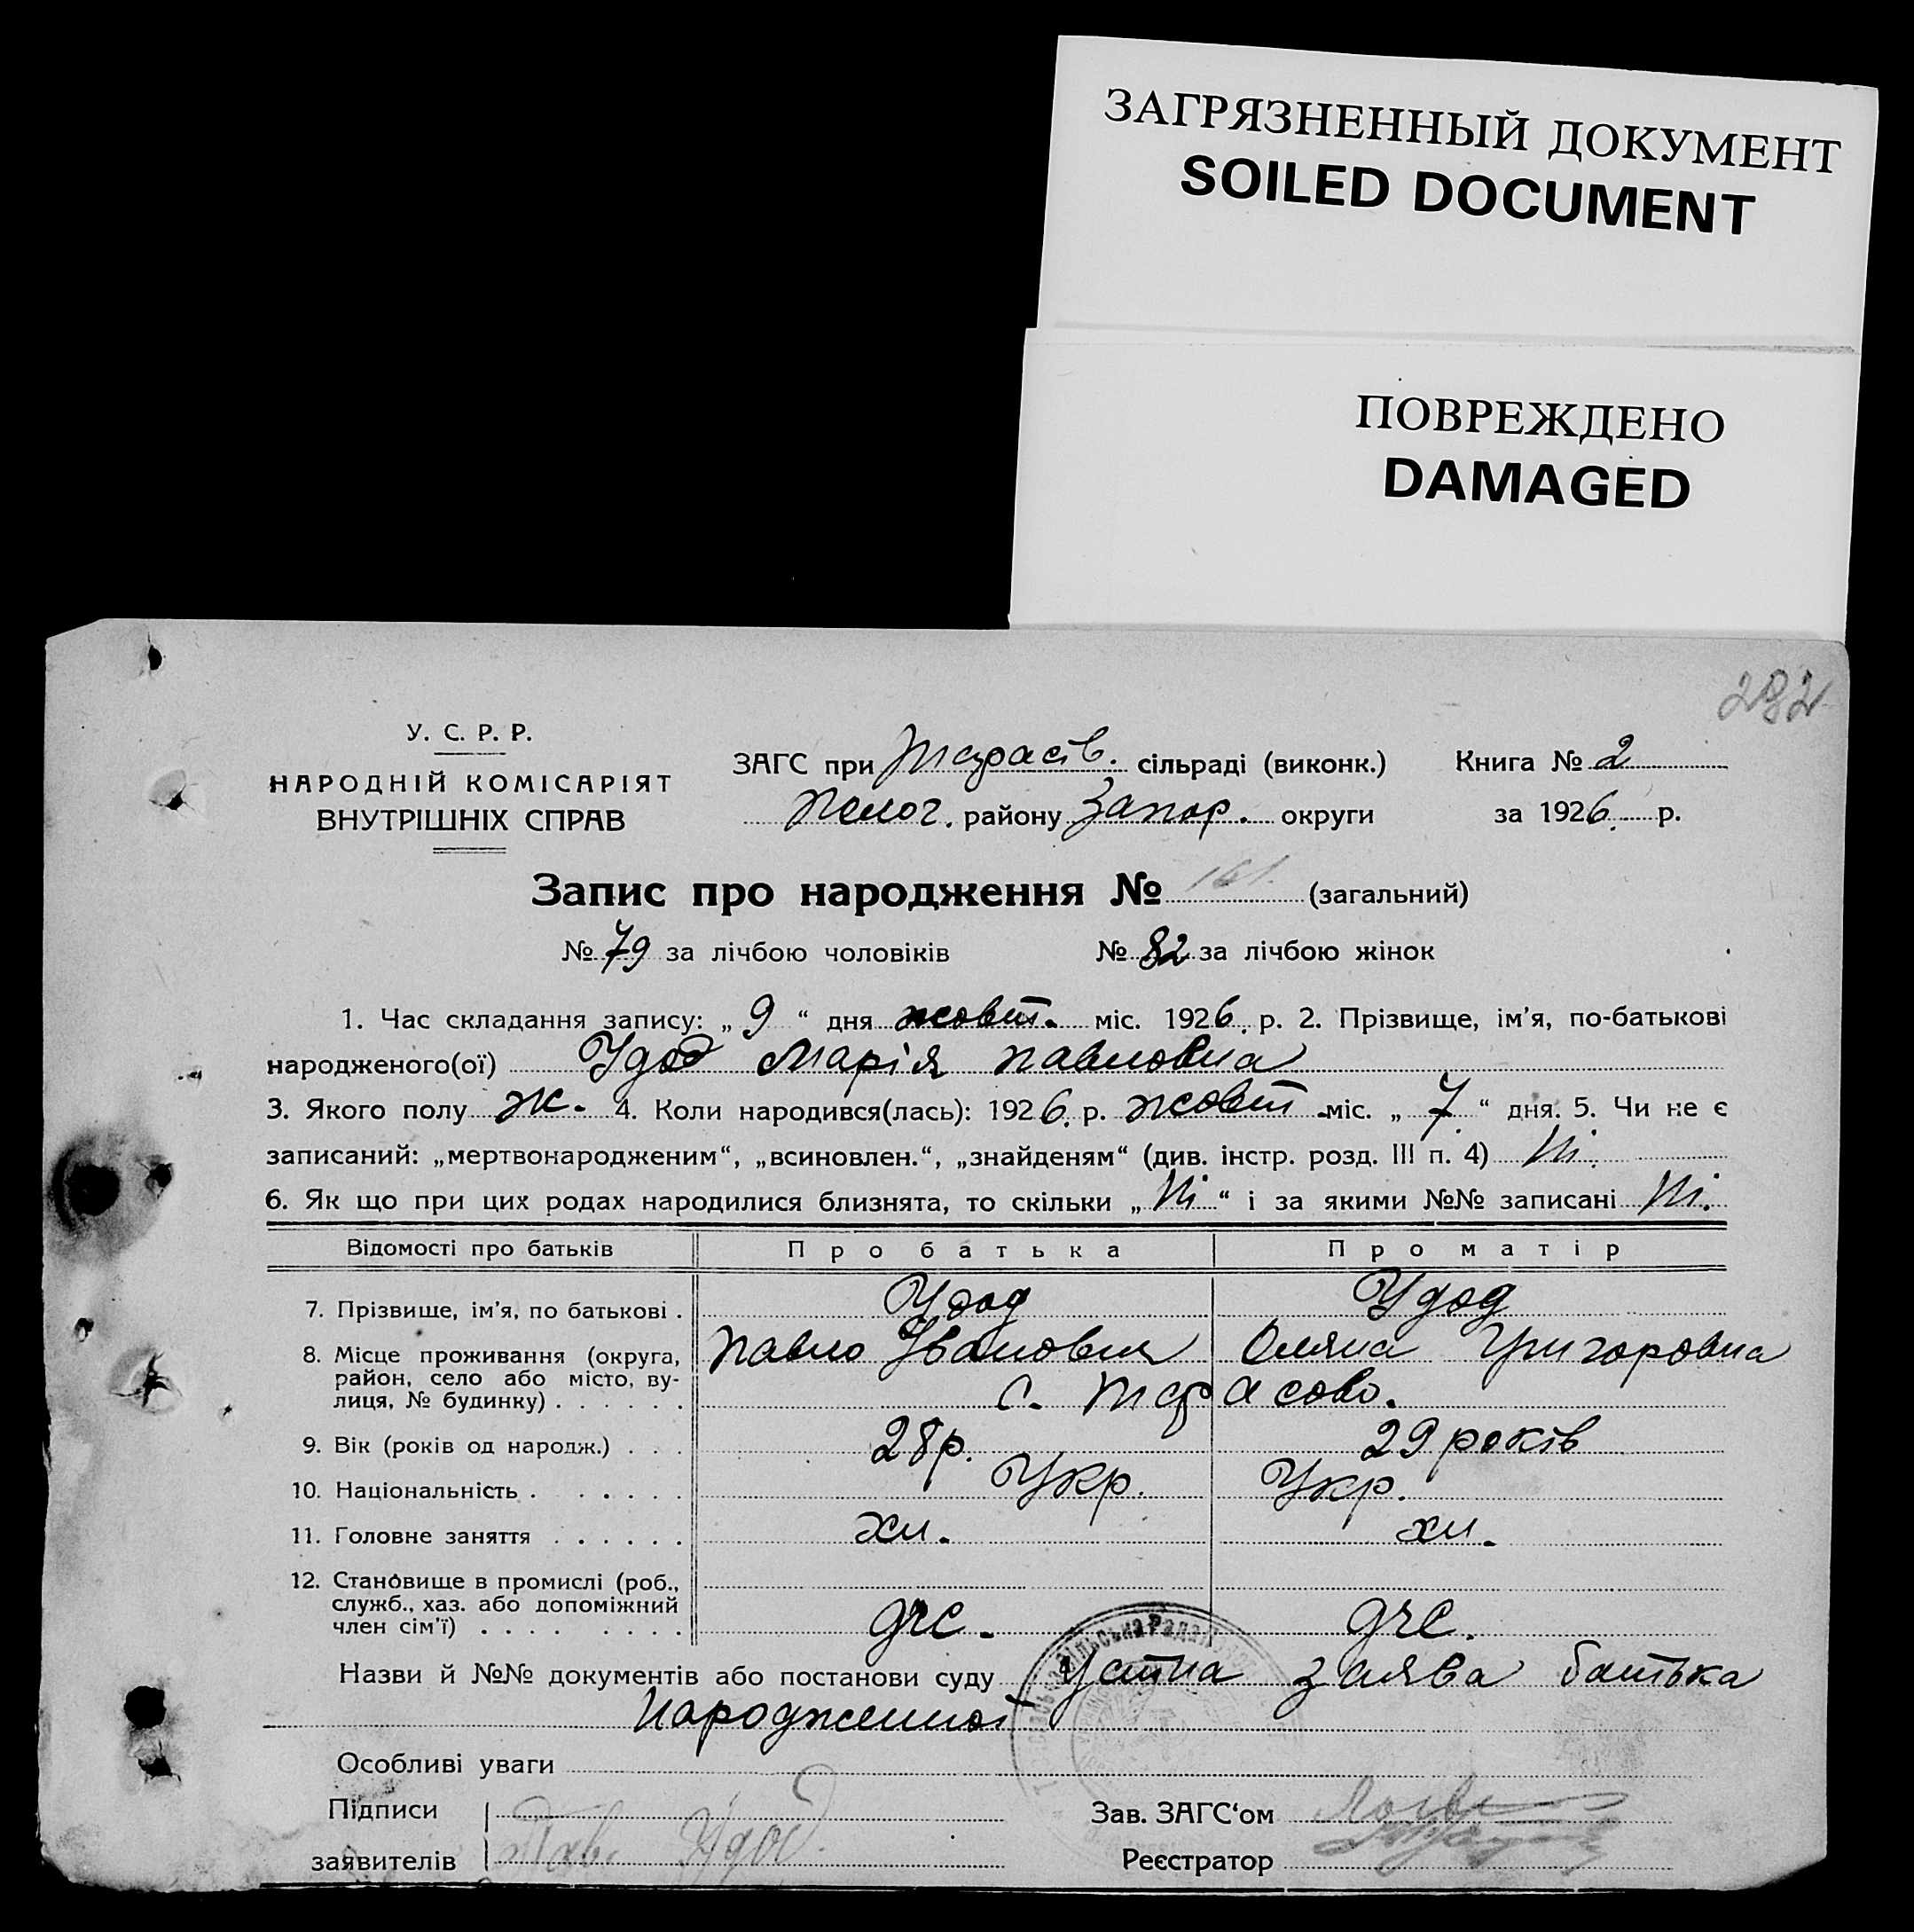 ЗАГРЯЗНЕННЫЙ ДОКУМЕНТ
SOILED DOCUMENT
ПОВРЕЖДЕНО
DAMAGED
282
У. С. Р. Р.
НАРОДНІЙ КОМІСАРІЯТ
ВНУТРІШНІХ СПРАВ
ЗАГС при сільраді (виконк.)
Полог. району Запор. округи
Книга № 2
за 1926 р.
Запис про народження № 161. (загальний)
№ 79 за лічбою чоловіків № 82 за лічбою жінок
1. Час складання запису: „ 9 “ дня жовт. міс. 1926 р. 2. Прізвище, ім’я, по-батькові
народженого(ої) Удод Марія Павловна
3. Якого полу ж. 4. Коли народився(лась): 1926 р. жовт міс. „ 7 “ дня. 5. Чи не є
записаний: „мертвонародженим“, „всиновлен.“, „знайденям“ (див. інстр. розд. III п. 4) Ні.
6. Як що при цих родах народилися близнята, то скільки „ Ні “ і за якими №№ записані Ні.
Відомості про батьків Про батька Про матір
7. Прізвище, ім’я, по батькові . Удод Удод
Павло Іванович Оляна Григоровна
8. Місце проживання (округа,
район, село або місто, ву-
лиця, № будинку) . . . . . . с.
9. Вік (років од народж.) . . . 28р. 29 років
10. Національність . . . . . . Укр. Укр.
11. Головне заняття . . . . . . хл. хл.
12. Становище в промислі (роб.,
служб., хаз. або допоміжний
член сім’ї) . . . . . . . . дчс. дчс.
Назви й №№ документів або постанови суду Устна заява батька
народженної
Особливі уваги
Підписи
заявителів Пав. Удод
Зав. ЗАГС‘ом
Реєстратор